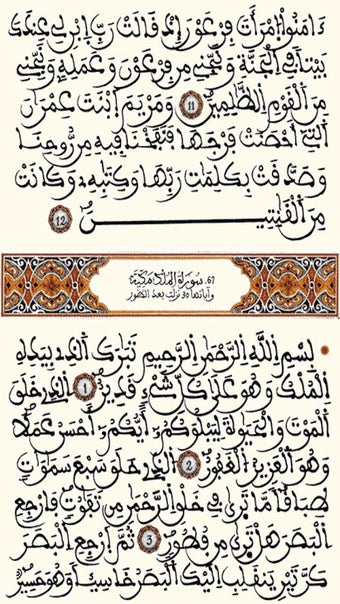 ءَامَنُواْ اُمْرَأَتَ فِرْعَوْنَ إِذْ قَالَتْ رَبِّ اِبْنِ لِي عِندَكَ
بَيْتاً فِي اِلْجَنَّةِ وَنَجِّنِي مِن فِرْعَوْنَ وَعَمَلِهِ وَنَجِّنِي
مِنَ اَلْقَوْمِ اِلظَّٰلِمِينَ 11 وَمَرْيَمَ اَبْنَتَ عِمْرَٰنَ
اَلتِي أَحْصَنَتْ فَرْجَهَا فَنَفَخْنَا فِيهِ مِن رُّوحِنَا
وَصَدَّقَتْ بِكَلِمَٰتِ رَبِّهَا وَكِتَٰبِهِ وَكَانَتْ
مِنَ اَلْقَٰنِتِينَ 12
67. سورة الملك مكية
وآياتها 30 نزلت بعد الطور
بِسْمِ اِللَّهِ اِلرَّحْمَٰنِ اِلرَّحِيمِ تَبَٰرَكَ اَلذِي بِيَدِهِ
اِلْمُلْكُ وَهُوَ عَلَىٰ كُلِّ شَيْءٍ قَدِيرٌ 1 اِلذِي خَلَقَ
اَلْمَوْتَ وَالْحَيَوٰةَ لِيَبْلُوَكُمْ أَيُّكُمْ أَحْسَنُ عَمَلاً
وَهُوَ اَلْعَزِيزُ اُلْغَفُورُ 2 اَلذِي خَلَقَ سَبْعَ سَمَٰوَٰتٍ
طِبَاقاً مَّا تَرَىٰ فِي خَلْقِ اِلرَّحْمَٰنِ مِن تَفَٰوُتٍ فَارْجِعِ
اِلْبَصَرَ هَلْ تَرَىٰ مِن فُطُورٍ 3 ثُمَّ اَرْجِعِ اِلْبَصَرَ
كَرَّتَيْنِ يَنقَلِبِ اِلَيْكَ اَلْبَصَرُ خَاسِئاً وَهُوَ حَسِيرٌ